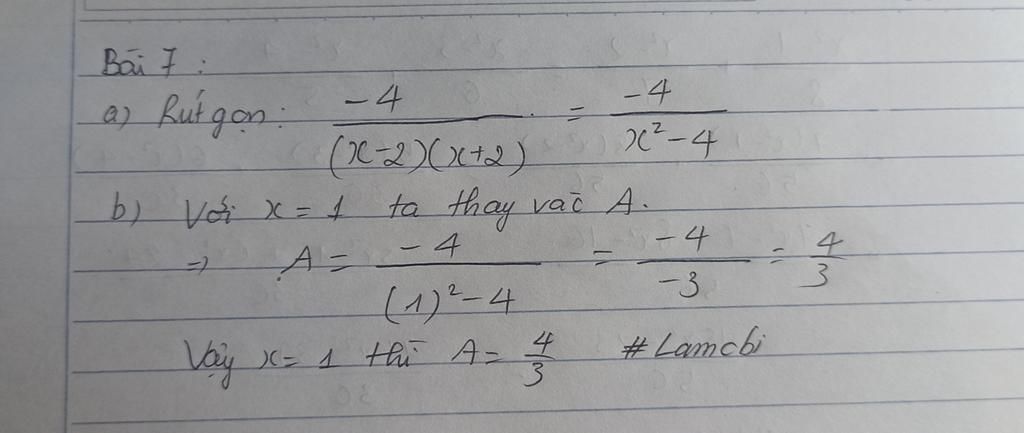 Bài 7 :
a) Rút gọn: -4/((x-2)(x+2)) = -4/(x²-4)
b) Với x = 1 ta thay vào A.
=> A = -4/((1)²-4) = -4/-3 = 4/3
Vậy x = 1 thì A = 4/3 #Lamcbi